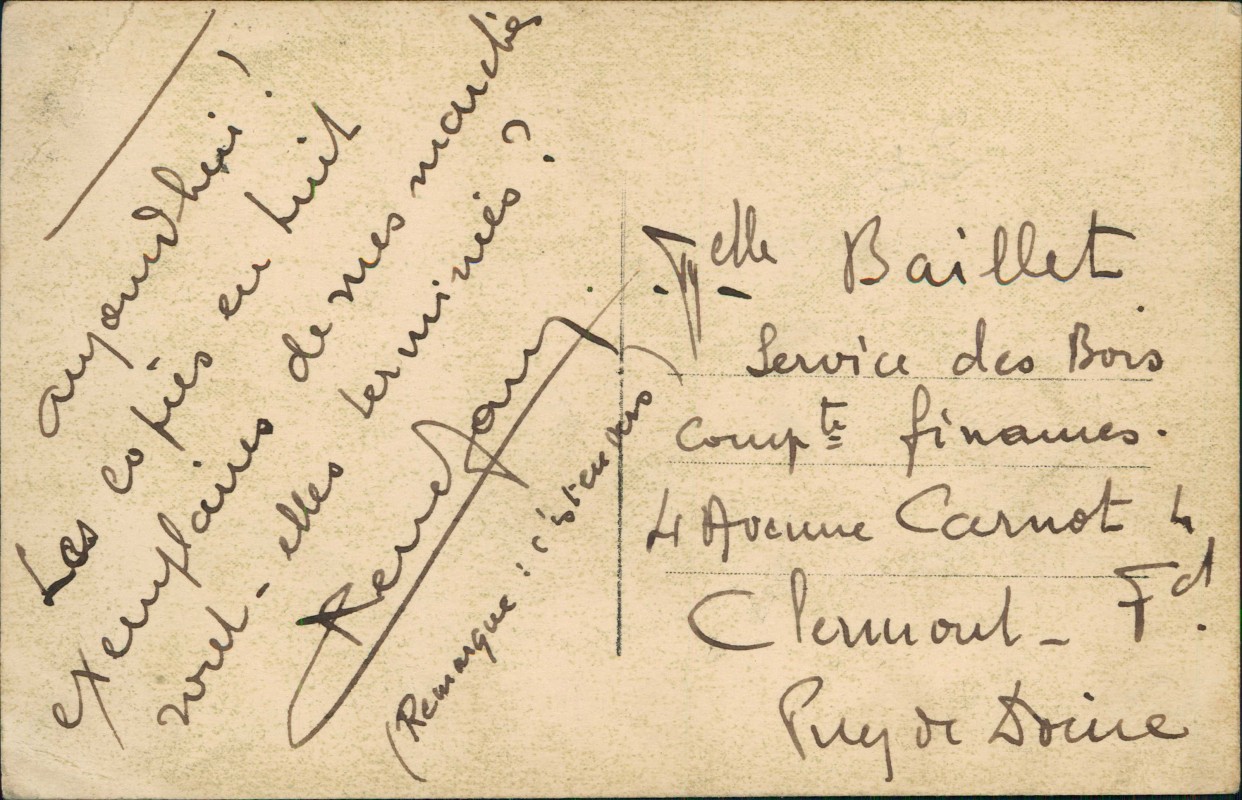 aujourdhui !
Les copies en huit
exemplaires de mes marchés
sont-elles terminées ?
(Remarque : c'est en
Melle Baillet
Service des Bois
Compte finances.
4 Avenue Carnot 4
Clermont - Fd.
Puy de Dôme